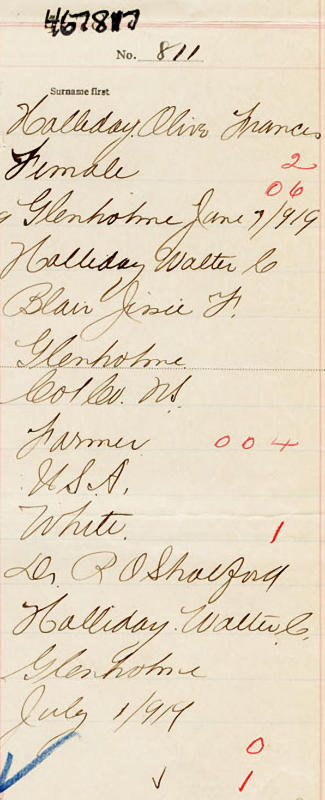 467817
No. 811
Surname first
Halliday Olive Frances
Female 2
06
Glenholme June 7/919
Halliday Walter C
Blair Jessie F.
Glenholme
Col Co. NS
Farmer 004
U.S.A.
White. 1
Dr. R O Shatford
Halliday. Walter C.
Glenholme
July 1/919
0
1